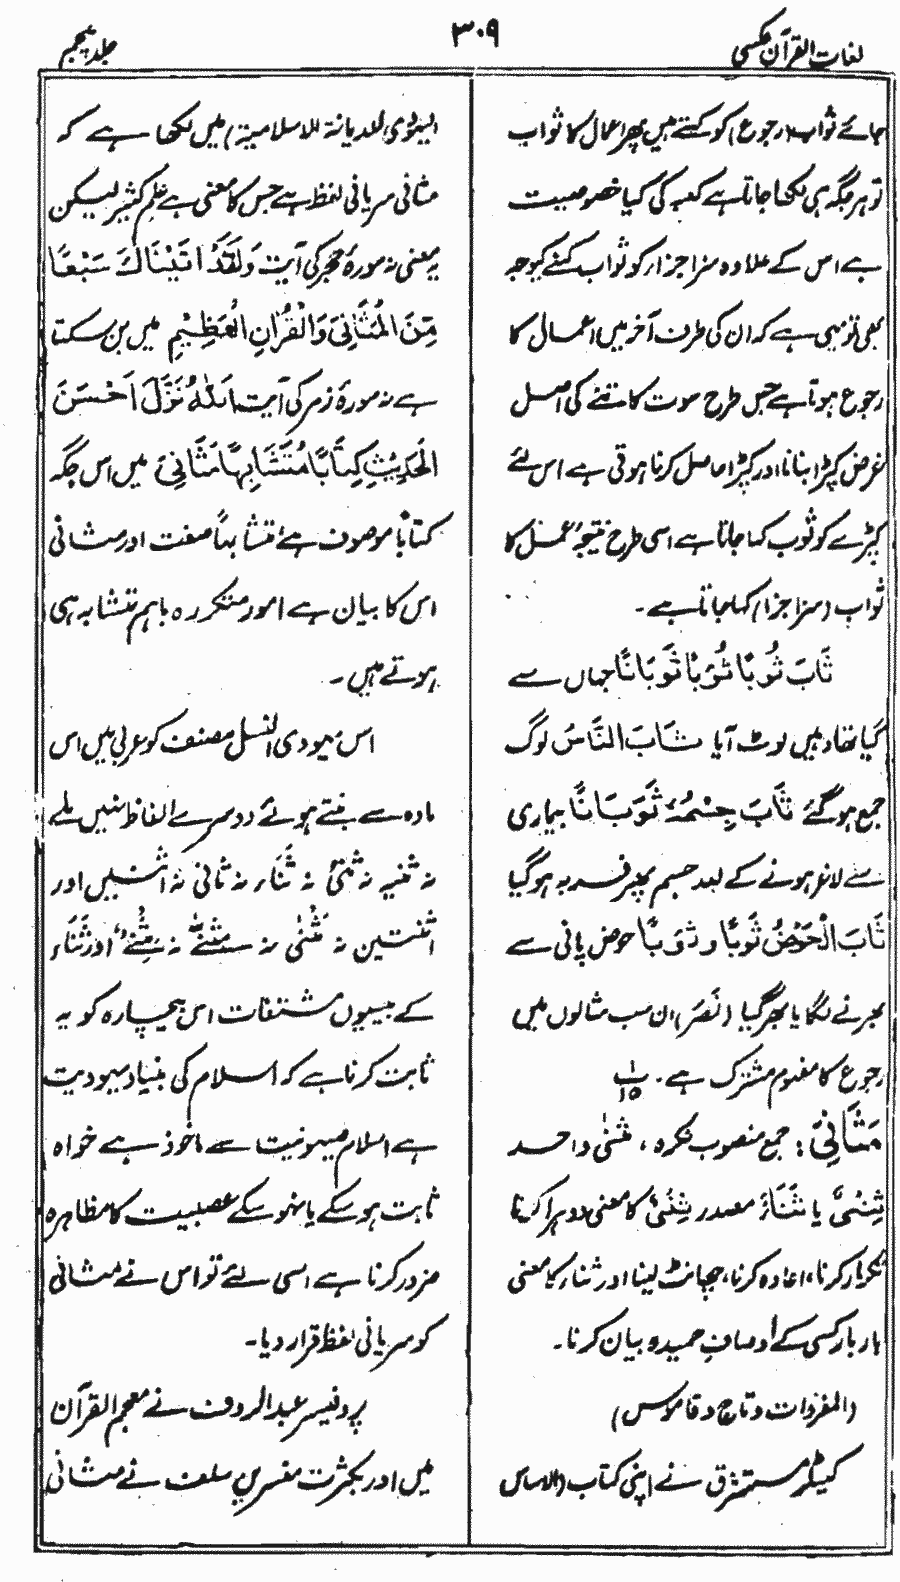 لغات القرآن عکسی
۳۰۹
جلد پنجم
جائے ثواب (رجوع) کو کہتے ہیں پھر اعمال کا ثواب
تو ہر جگہ ہی لکھا جاتا ہے کعبہ کی کیا خصوصیت
ہے اس کے علاوہ سزا جزا کو ثواب کہنے کی وجہ
بھی تو یہی ہے کہ ان کی طرف آخر میں اعمال کا
رجوع ہوتا ہے جس طرح سوت کاتنے کی اصل
غرض کپڑا بنانا اور کپڑا حاصل کرنا ہوتی ہے اس لئے
کپڑے کو ثوب کہا جاتا ہے اسی طرح نتیجۂ عمل کا
ثواب (سزا جزا) کہا جاتا ہے۔
ثَابَ ثُوبًا ثُوَبًا ثَوَبَانًا جہاں سے
گیا تھا وہیں لوٹ آیا ثَابَ النَّاسُ لوگ
جمع ہو گئے ثَابَ جِسْمُہٗ ثَوَبَانًا بیماری
سے لاغر ہونے کے بعد جسم پھر فربہ ہو گیا
ثَابَ الْحَوْضُ ثَوبًا و ثوَبًا حوض پانی سے
بھرنے لگا یا بھر گیا (نَصَرَ) ان سب مثالوں میں
رجوع کا مفہوم مشترک ہے۔ پ ۱/۱۵
مَثَانِیَ : جمع منصوب نکرہ، مَثنٰی واحد
ثِنْیٌ یا ثَنَاءٌ مصدر ثِنْیٌ کا معنی دوہرا کرنا
تکرار کرنا، اعادہ کرنا، چھانٹ لینا اور ثناء کا معنی
بار بار کسی کے اوصافِ حمیدہ بیان کرنا۔
(المفردات و تاج و قاموس)
کیلر مستشرق نے اپنی کتاب (الاساس
الیہودی للدیانۃ الاسلامیۃ) میں لکھا ہے کہ
مثانی سریانی لفظ ہے جس کا معنی ہے علم کثیر لیکن
یہ معنی نہ سورۂ حجر کی آیت وَلَقَدْ اٰتَیْنَاكَ سَبْعًا
مِّنَ الْمَثَانِی وَالْقُرْاٰنِ الْعَظِیْمِ میں بن سکتا
ہے نہ سورۂ زمر کی آیت اَللّٰهُ نَزَّلَ اَحْسَنَ
الْحَدِیْثِ كِتَابًا مُتَشَابِهًا مَثَانِیَ میں اس جگہ
کتاباً موصوف ہے متشابہاً صفت اور مثانی
اس کا بیان ہے امور متکررہ باہم متشابہ ہی
ہوتے ہیں۔
اس یہودی النسل مصنف کو عربی میں اس
مادہ سے بنتے ہوئے دوسرے الفاظ نہیں ملے
نہ تثنیہ نہ ثنیٌ نہ ثَنَاء نہ ثانی نہ اثنین اور
اثنتین نہ مَثْنٰی نہ مثنیٰ نہ مِثْنٰے اور ثَنَاء
کے بیسیوں مشتقات اس بیچارہ کو یہ
ثابت کرنا ہے کہ اسلام کی بنیاد یہودیت
ہے اسلام صیہونیت سے ماخوذ ہے خواہ
ثابت ہو سکے یا نہ ہو سکے عصبیت کا مظاہرہ
ضرور کرنا ہے اسی لئے تو اس نے مثانی
کو سریانی لفظ قرار دیا۔
پروفیسر عبدالرؤف نے معجم القرآن
میں اور بکثرت مفسرین سلف نے مثانی